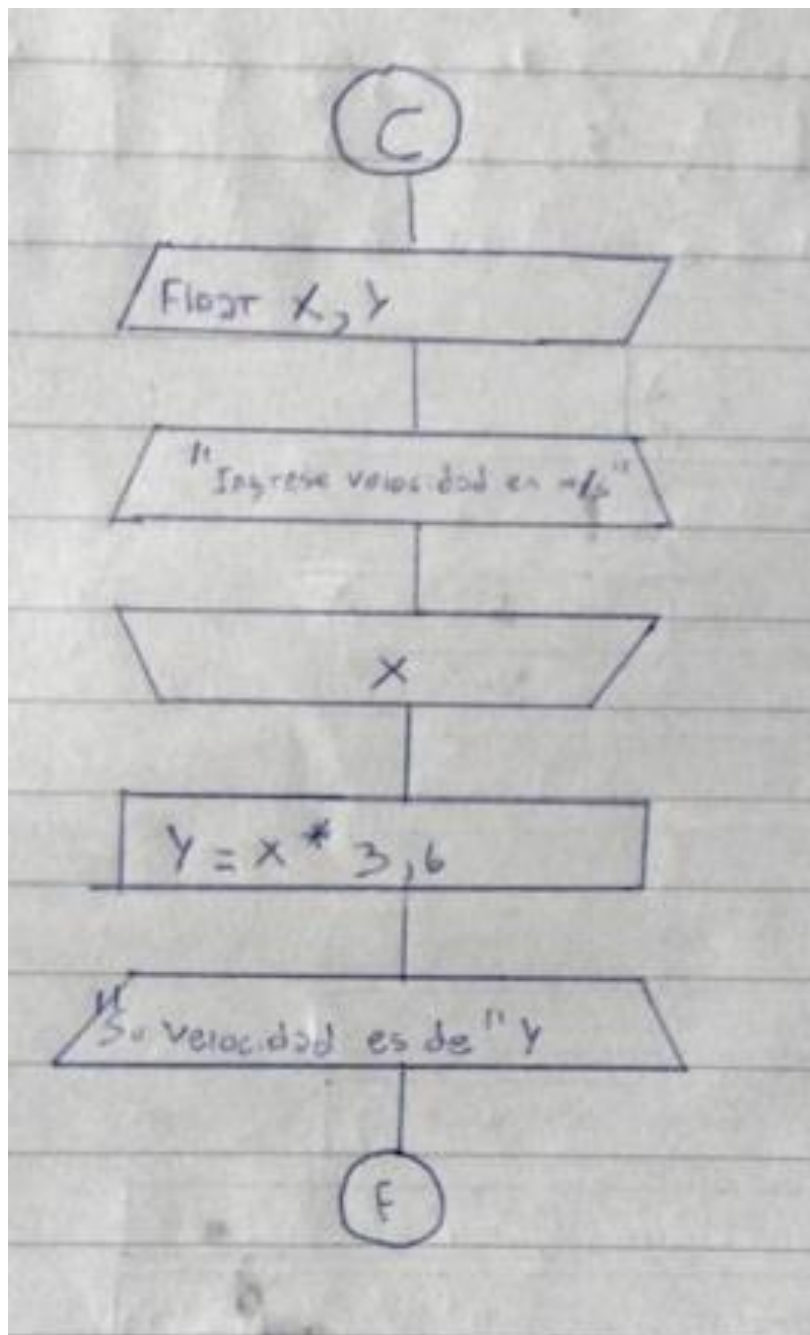 C
Float X, Y
"Ingrese velocidad en m/s"
X
Y = X * 3,6
"Su velocidad es de" Y
F